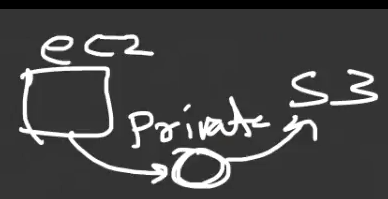 ec2
private S3